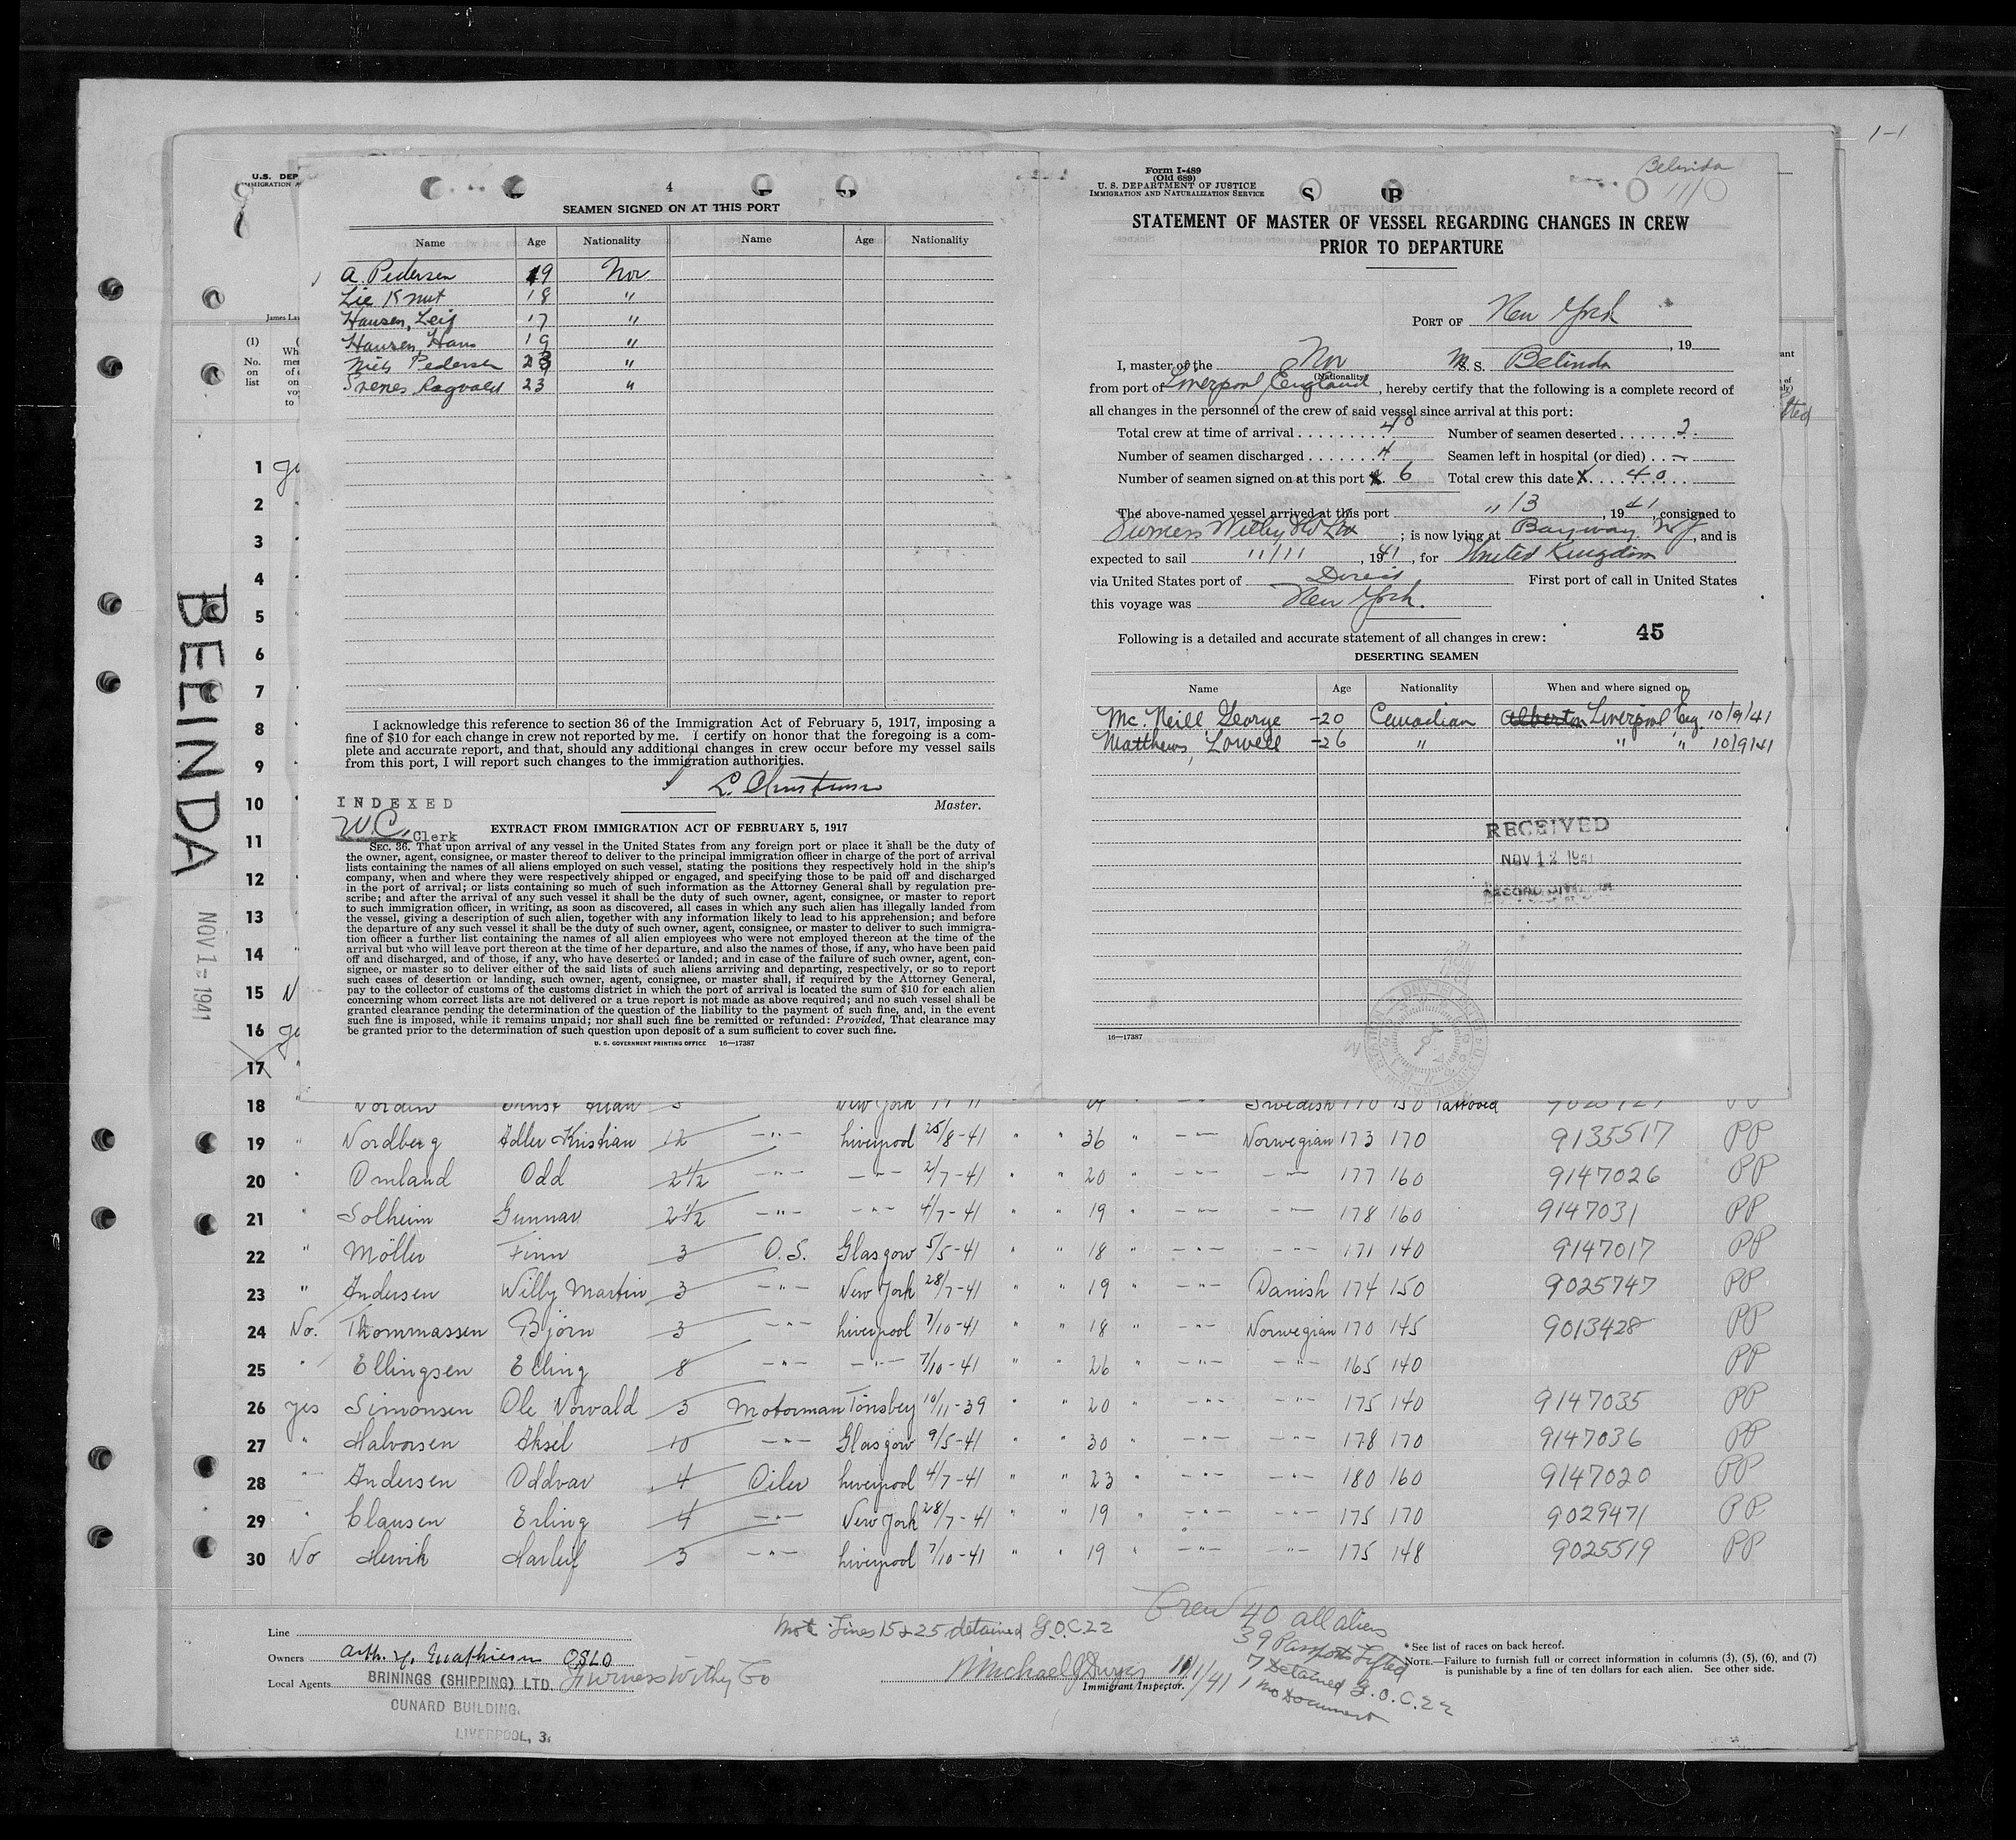 1-1
U.S. DEP
IMMIGRATION A
4
SEAMEN SIGNED ON AT THIS PORT
Name Age Nationality Name Age Nationality
A. Pedersen 19 Nor
Lie Knut 18 "
Hansen, Leif 17 "
Hansen, Hans 19 "
Niels Pedersen 23 "
Ragvald 23 "
I acknowledge this reference to section 36 of the Immigration Act of February 5, 1917, imposing a
fine of $10 for each change in crew not reported by me. I certify on honor that the foregoing is a com-
plete and accurate report, and that, should any additional changes in crew occur before my vessel sails
from this port, I will report such changes to the immigration authorities.
L. Christensen
Master.
INDEXED
W.C. Clerk
EXTRACT FROM IMMIGRATION ACT OF FEBRUARY 5, 1917
SEC. 36. That upon arrival of any vessel in the United States from any foreign port or place it shall be the duty of
the owner, agent, consignee, or master thereof to deliver to the principal immigration officer in charge of the port of arrival
lists containing the names of all aliens employed on such vessel, stating the positions they respectively hold in the ship's
company, when and where they were respectively shipped or engaged, and specifying those to be paid off and discharged
in the port of arrival; or lists containing so much of such information as the Attorney General shall by regulation pre-
scribe; and after the arrival of any such vessel it shall be the duty of such owner, agent, consignee, or master to report
to such immigration officer, in writing, as soon as discovered, all cases in which any such alien has illegally landed from
the vessel, giving a description of such alien, together with any information likely to lead to his apprehension; and before
the departure of any such vessel it shall be the duty of such owner, agent, consignee, or master to deliver to such immigra-
tion officer a further list containing the names of all alien employees who were not employed thereon at the time of the
arrival but who will leave port thereon at the time of her departure, and also the names of those, if any, who have been paid
off and discharged, and of those, if any, who have deserted or landed; and in case of the failure of such owner, agent, con-
signee, or master so to deliver either of the said lists of such aliens arriving and departing, respectively, or so to report
such cases of desertion or landing, such owner, agent, consignee, or master shall, if required by the Attorney General,
pay to the collector of customs of the customs district in which the port of arrival is located the sum of $10 for each alien
concerning whom correct lists are not delivered or a true report is not made as above required; and no such vessel shall be
granted clearance pending the determination of the question of the liability to the payment of such fine, and, in the event
such fine is imposed, while it remains unpaid; nor shall such fine be remitted or refunded: Provided, That clearance may
be granted prior to the determination of such question upon deposit of a sum sufficient to cover such fine.
U. S. GOVERNMENT PRINTING OFFICE 16—17387
Form I-489
(Old 689)
U. S. DEPARTMENT OF JUSTICE
IMMIGRATION AND NATURALIZATION SERVICE
S B
Belinda
11/10
STATEMENT OF MASTER OF VESSEL REGARDING CHANGES IN CREW
PRIOR TO DEPARTURE
PORT OF New York
, 19
I, master of the Nor M. S. Belinda
(Nationality)
from port of Liverpool England, hereby certify that the following is a complete record of
all changes in the personnel of the crew of said vessel since arrival at this port:
Total crew at time of arrival 40 Number of seamen deserted 2.
Number of seamen discharged 4 Seamen left in hospital (or died) -
Number of seamen signed on at this port X 6 Total crew this date X 40
The above-named vessel arrived at this port 11/3, 1941, consigned to
Furness Withy & Co Ltd; is now lying at Bayway N J, and is
expected to sail 11/11, 1941, for United Kingdom
via United States port of Direct First port of call in United States
this voyage was New York.
Following is a detailed and accurate statement of all changes in crew: 45
DESERTING SEAMEN
Name Age Nationality When and where signed on
Mc. Neill George -20 Canadian Alberton Liverpool Eng 10/9/41
Matthews, Lowell -26 " " " 10/9/41
RECEIVED
NOV 12 1941
16—17387
James La
(1)
No.
on
list
BELINDA
NOV 1 - 1941
1
2
3
4
5
6
7
8
9
10
11
12
13
14
15 N
16
17
18 " Nordin Ernst New York Swedish 170 150 Tattooed
19 " Nordberg Adler Kristian 12 -"- Liverpool 25/8-41 " " 36 " -"- Norwegian 173 170 9135517 PP
20 " Omland Odd 2 1/2 -"- -"- 2/7-41 " " 20 " -"- -"- 177 160 9147026 PP
21 " Solheim Gunnar 2 1/2 -"- -"- 4/7-41 " " 19 " -"- -"- 178 160 9147031 PP
22 " Möller Finn 3 O.S. Glasgow 5/5-41 " " 18 " -"- -"- 171 140 9147017 PP
23 " Andersen Willy Martin 3 -"- New York 28/7-41 " " 19 " -"- Danish 174 150 9025747 PP
24 No. Thommassen Björn 3 -"- Liverpool 7/10-41 " " 18 " -"- Norwegian 170 145 9013428 PP
25 " Ellingsen Elling 8 -"- -"- 7/10-41 " " 26 " -"- -"- 165 140 PP
26 yes Simonsen Ole Norvald 5 Motorman Tönsberg 10/11-39 " " 20 " -"- -"- 175 140 9147035 PP
27 " Halvorsen Aksel 10 -"- Glasgow 9/5-41 " " 30 " -"- -"- 178 170 9147036 PP
28 " Andersen Oddvar 4 Oiler Liverpool 4/7-41 " " 23 " -"- -"- 180 160 9147020 PP
29 " Clausen Erling 4 -"- New York 28/7-41 " " 19 " -"- -"- 175 170 9029471 PP
30 No Henvik Harleif 3 -"- Liverpool 7/10-41 " " 19 " -"- -"- 175 148 9025519 PP
Note Lines 15 & 25 detained G.O.C.22
Crew 40 all aliens
39 Passports Lifted
7 Detained G.O.C.22
1 no Document
Line
Owners Arth. H. Mathiesen OSLO
Local Agents BRININGS (SHIPPING) LTD. Furness Withy Co
CUNARD BUILDING,
LIVERPOOL, 3.
Immigrant Inspector. 11/1/41
* See list of races on back hereof.
NOTE.—Failure to furnish full or correct information in columns (3), (5), (6), and (7)
is punishable by a fine of ten dollars for each alien. See other side.